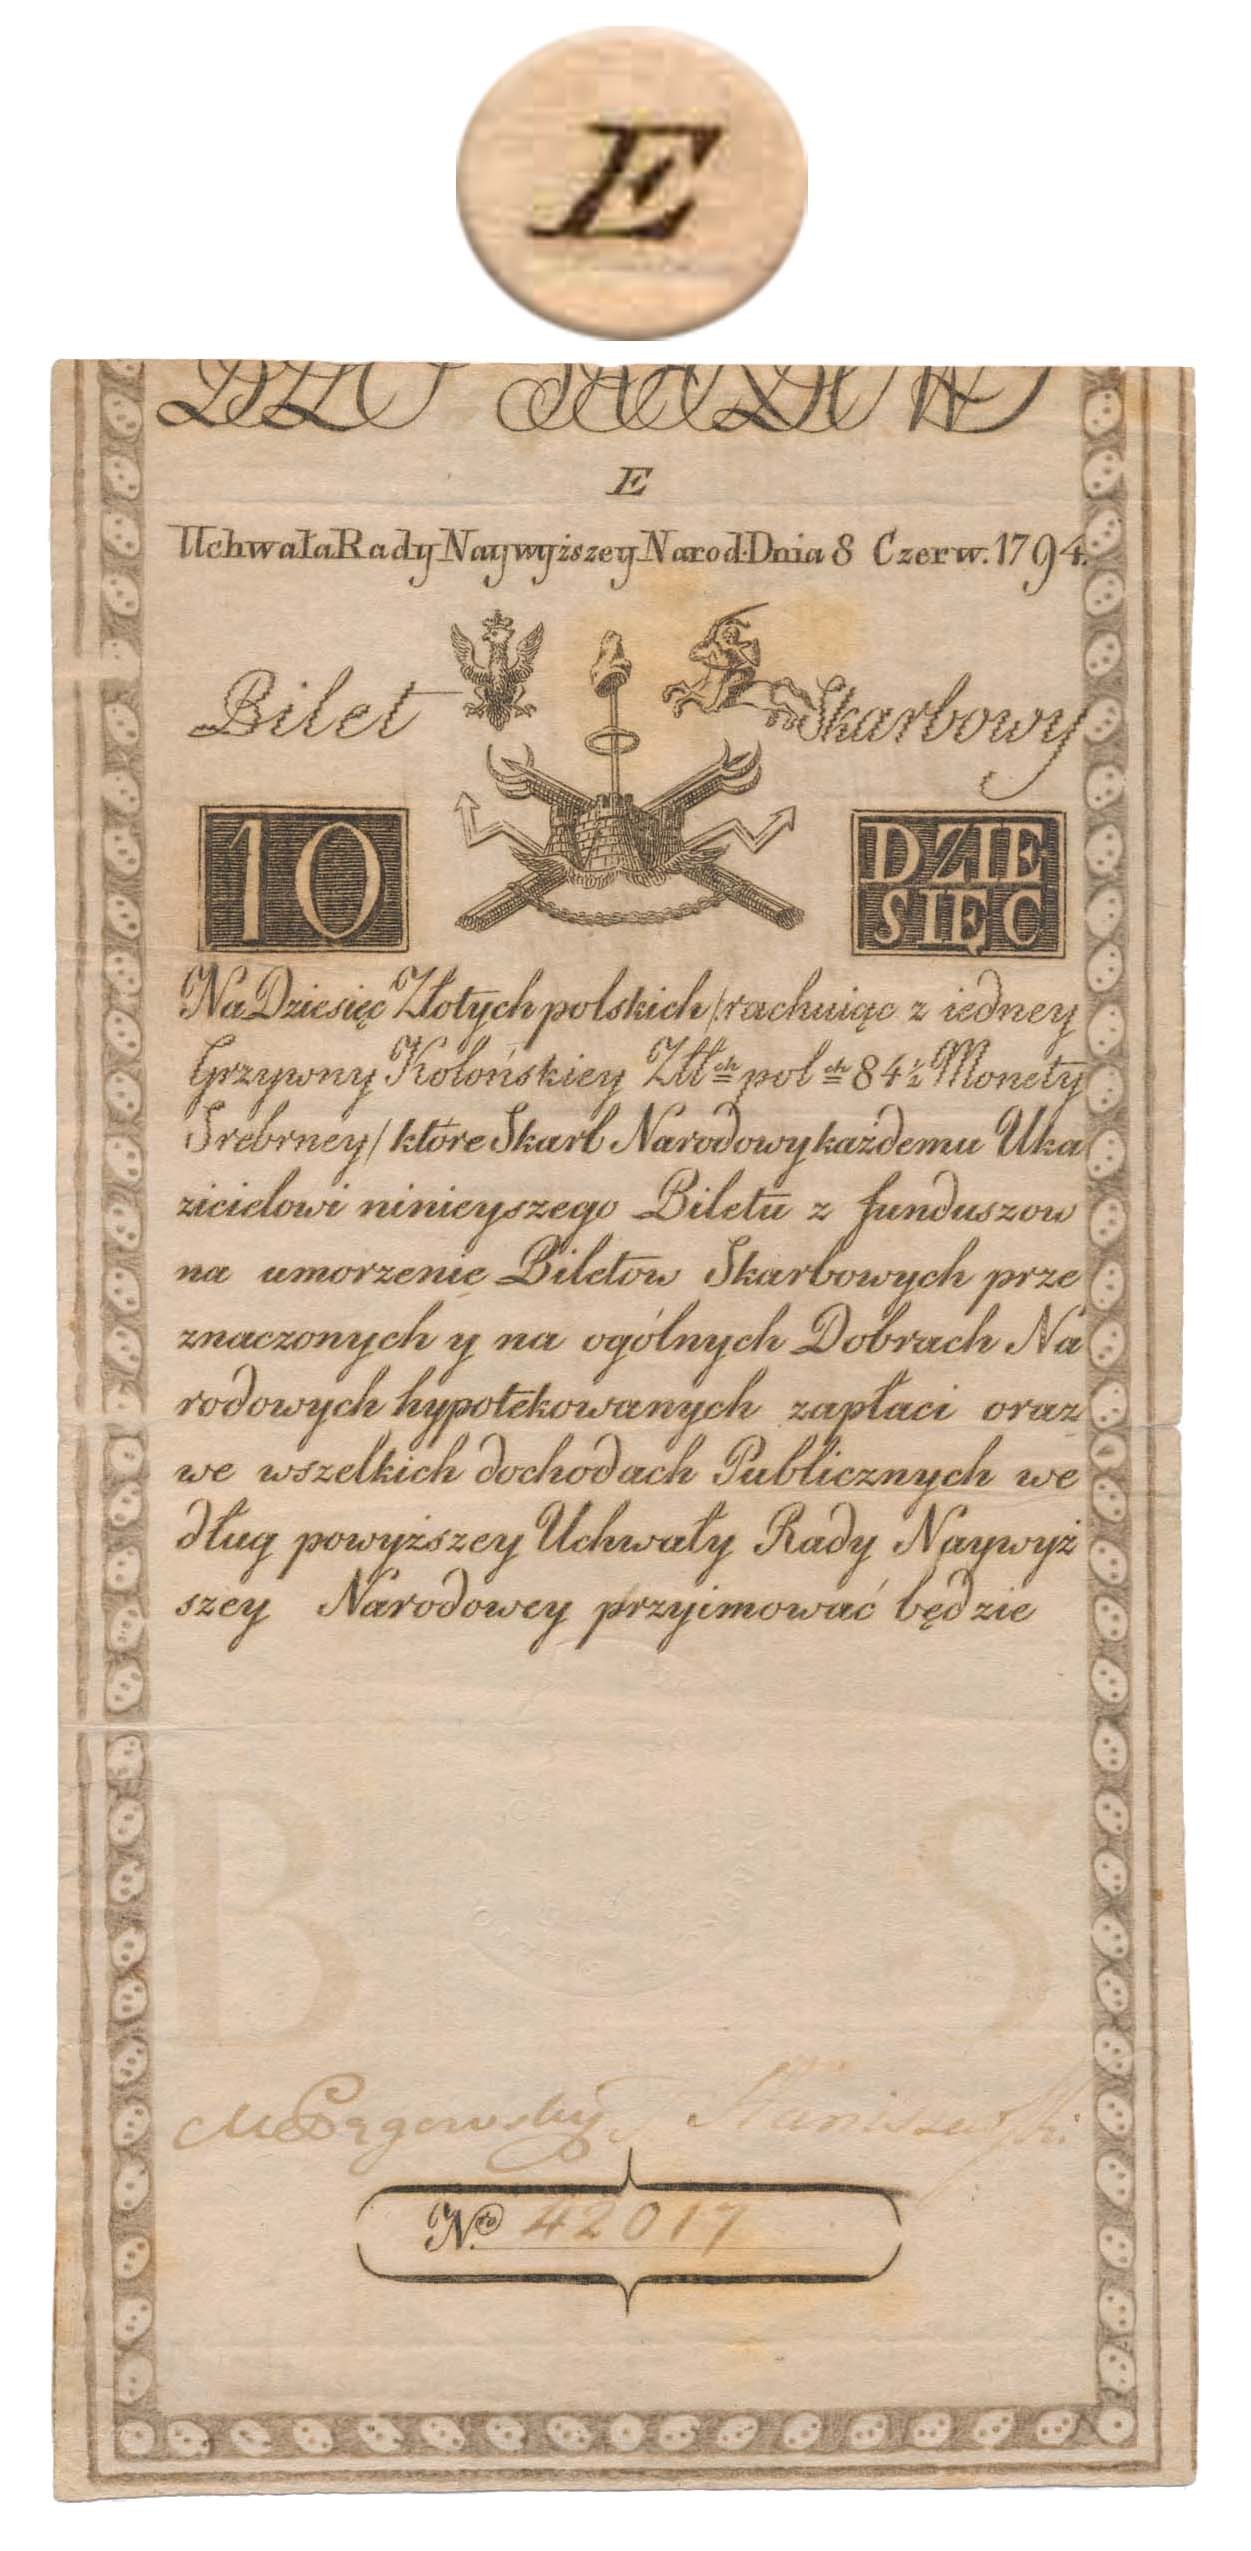 E
E
Uchwała Rady Naywyższey Narod. Dnia 8 Czerw. 1794.
Bilet Skarbowy
10 DZIE
SIĘC
Na Dziesięc Złotych polskich /:rachuiąc z iedney
Grzywny Kolońskiey Złł ch pol ch 84 ½ Monety
Srebrney/ które Skarb Narodowy każdemu Uka
zicielowi ninieyszego Biletu z funduszow
na umorzenie Biletow Skarbowych prze
znaczonych y na ogólnych Dobrach Na
rodowych hypotekowanych zapłaci oraz
we wszelkich dochodach Publicznych we
dług powyższey Uchwały Rady Naywyż
szey Narodowey przyimować będzie
B S
M Pągowski Staniszewski
Nro 42017